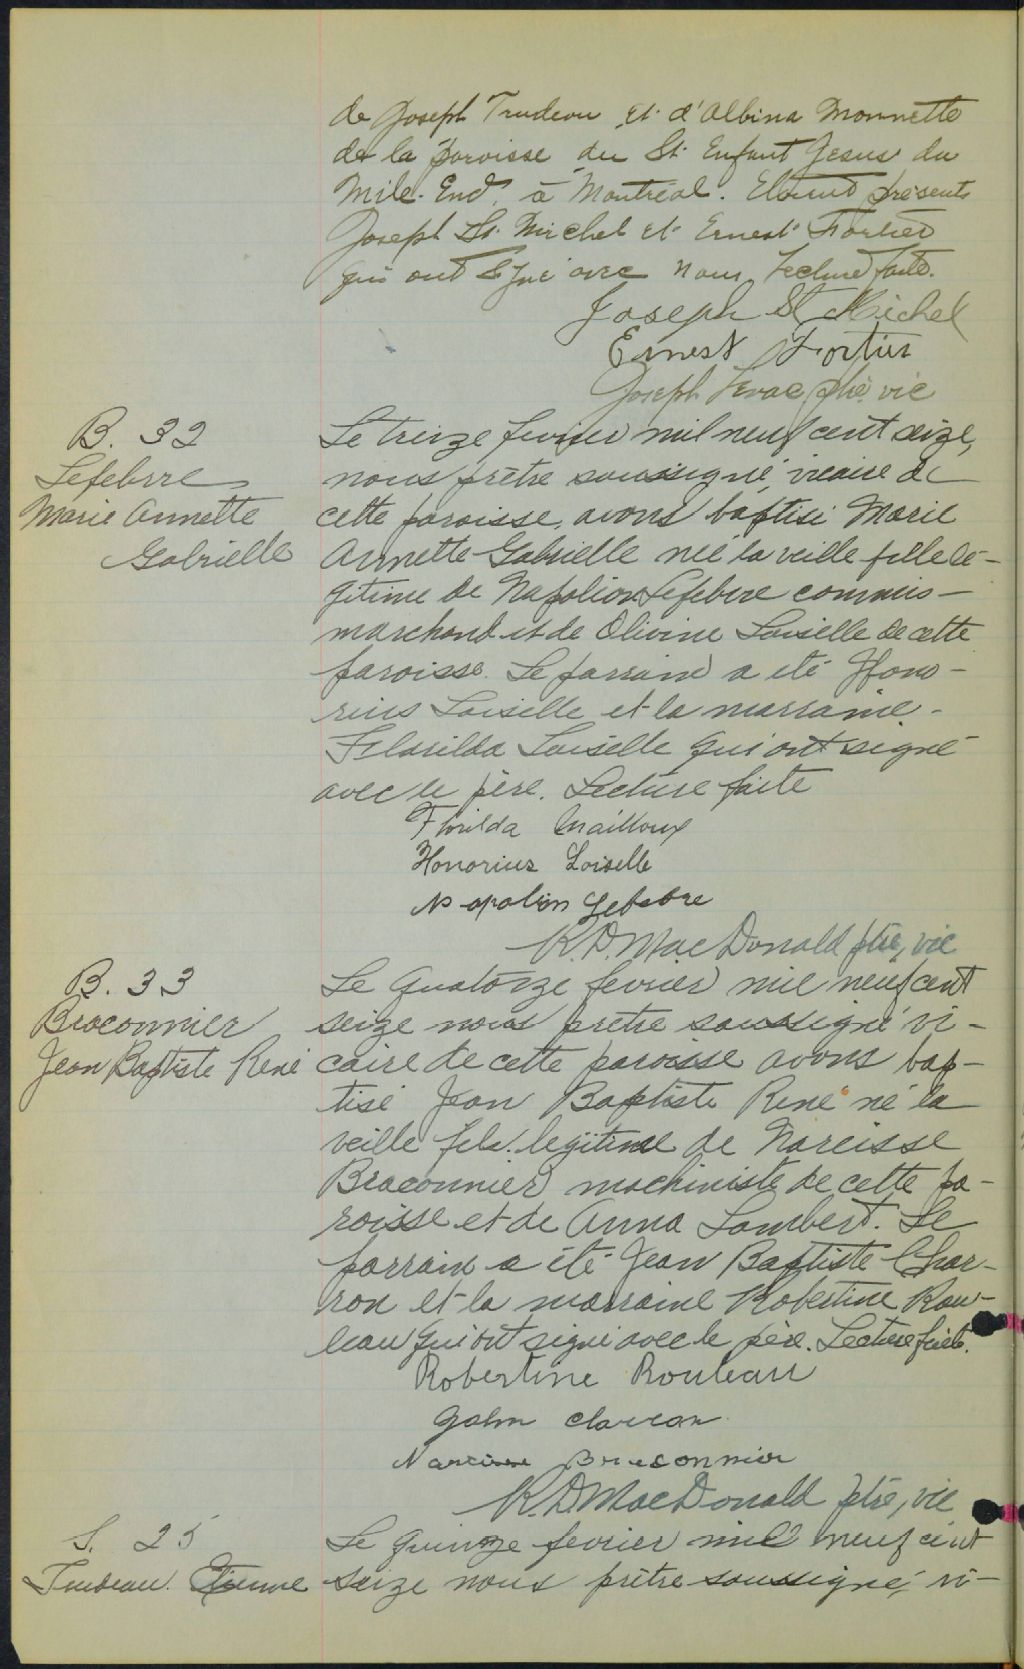 de Joseph Trudeau et d'Albina Monnette
de la paroisse du St. Enfant Jesus du
Mile-End, à Montréal. Etaient présents
Joseph St. Michel et Ernest Fortier
qui ont signé avec nous. Lecture faite.
Joseph St Michel
Ernest Fortier
Joseph Levac ptre vic
B. 32
Lefebvre
Marie Annette
Gabrielle
Le treize fevrier mil neuf cent seize,
nous prêtre soussigné, vicaire de
cette paroisse, avons baptisé Marie
Annette Gabrielle née la veille fille lé-
gitime de Napoléon Lefebvre commis-
marchand et de Olivine Loiselle de cette
paroisse. Le parrain a été Hono-
rius Loiselle et la marraine
Loiselle qui ont signé
avec le père. Lecture faite
Florilda Mailloux
Honorius Loiselle
Napoléon Lefebvre
R. D. MacDonald ptre, vic
B. 33
Braconnier
Jean Baptiste René
Le quatorze fevrier mil neuf cent
seize nous prêtre soussigné vi-
caire de cette paroisse avons bap-
tisé Jean Baptiste René né la
veille fils legitime de Narcisse
Braconnier machiniste de cette pa-
roisse et de Anna Lambert. Le
parrain a été Jean Baptiste Char-
ron et la marraine Robertine Rou-
leau qui ont signé avec le père. Lecture faite.
Robertine Rouleau
John Charron
Narcisse Braconnier
R. D. MacDonald ptre, vic
S. 25
Trudeau Etienne
Le quinze fevrier mil neuf cent
seize nous prêtre soussigné, vi-